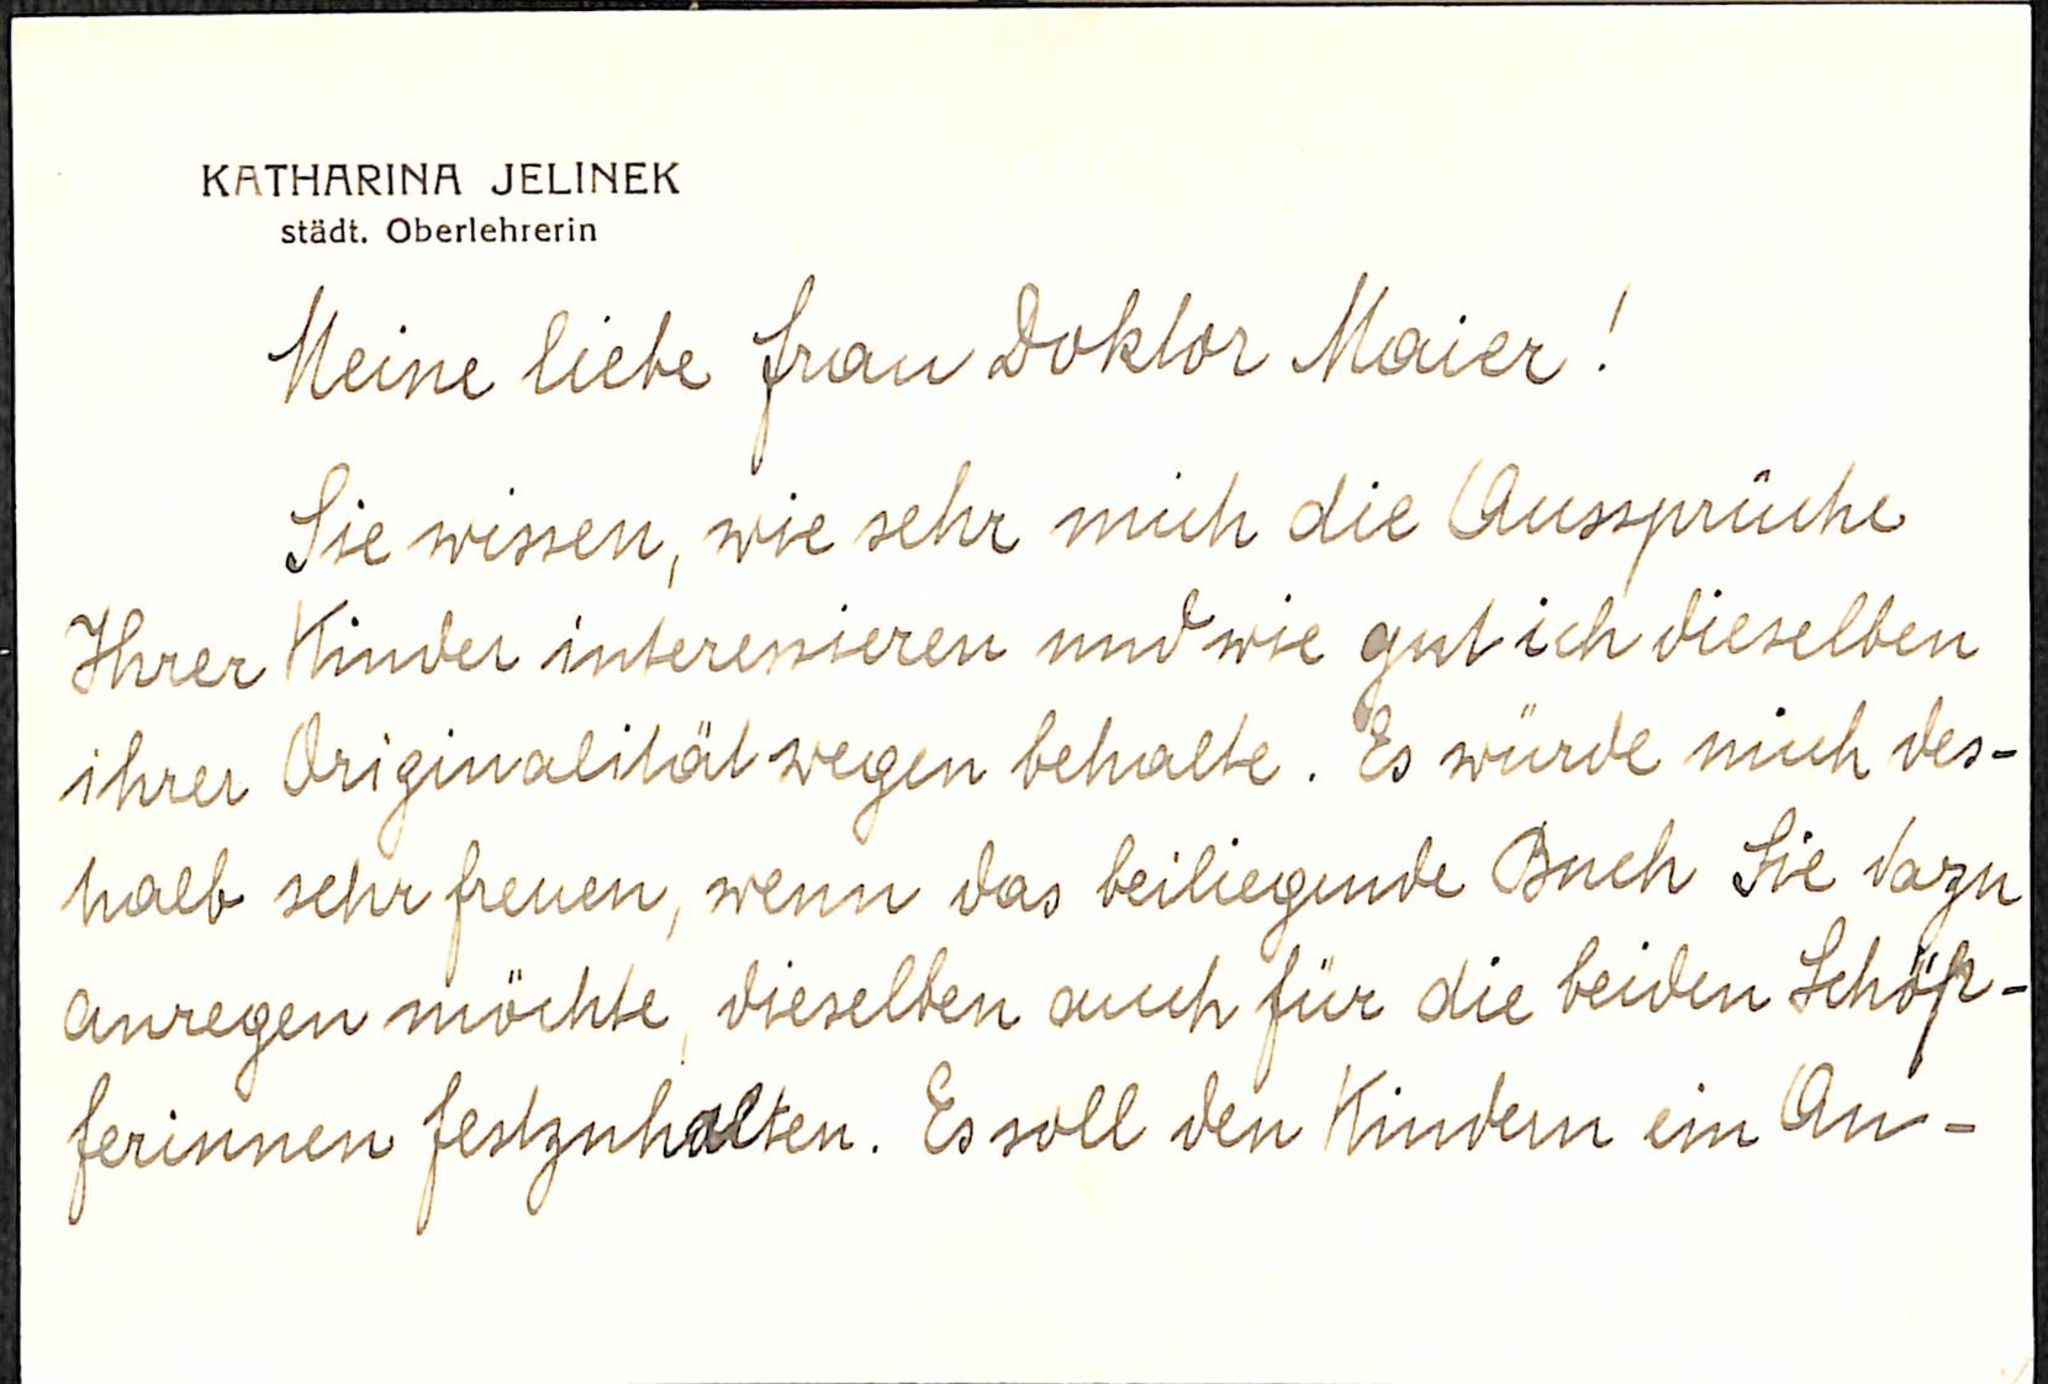 KATHARINA JELINEK
städt. Oberlehrerin
Meine liebe Frau Doktor Maier!
Sie wissen, wie sehr mich die Aussprüche
Ihrer Kinder interessieren und wie gut ich dieselben
ihrer Originalität wegen behalte. Es würde mich des-
halb sehr freuen, wenn das beiliegende Buch Sie dazu
anregen möchte, dieselben auch für die beiden Schöp-
ferinnen festzuhalten. Es soll den Kindern ein An-